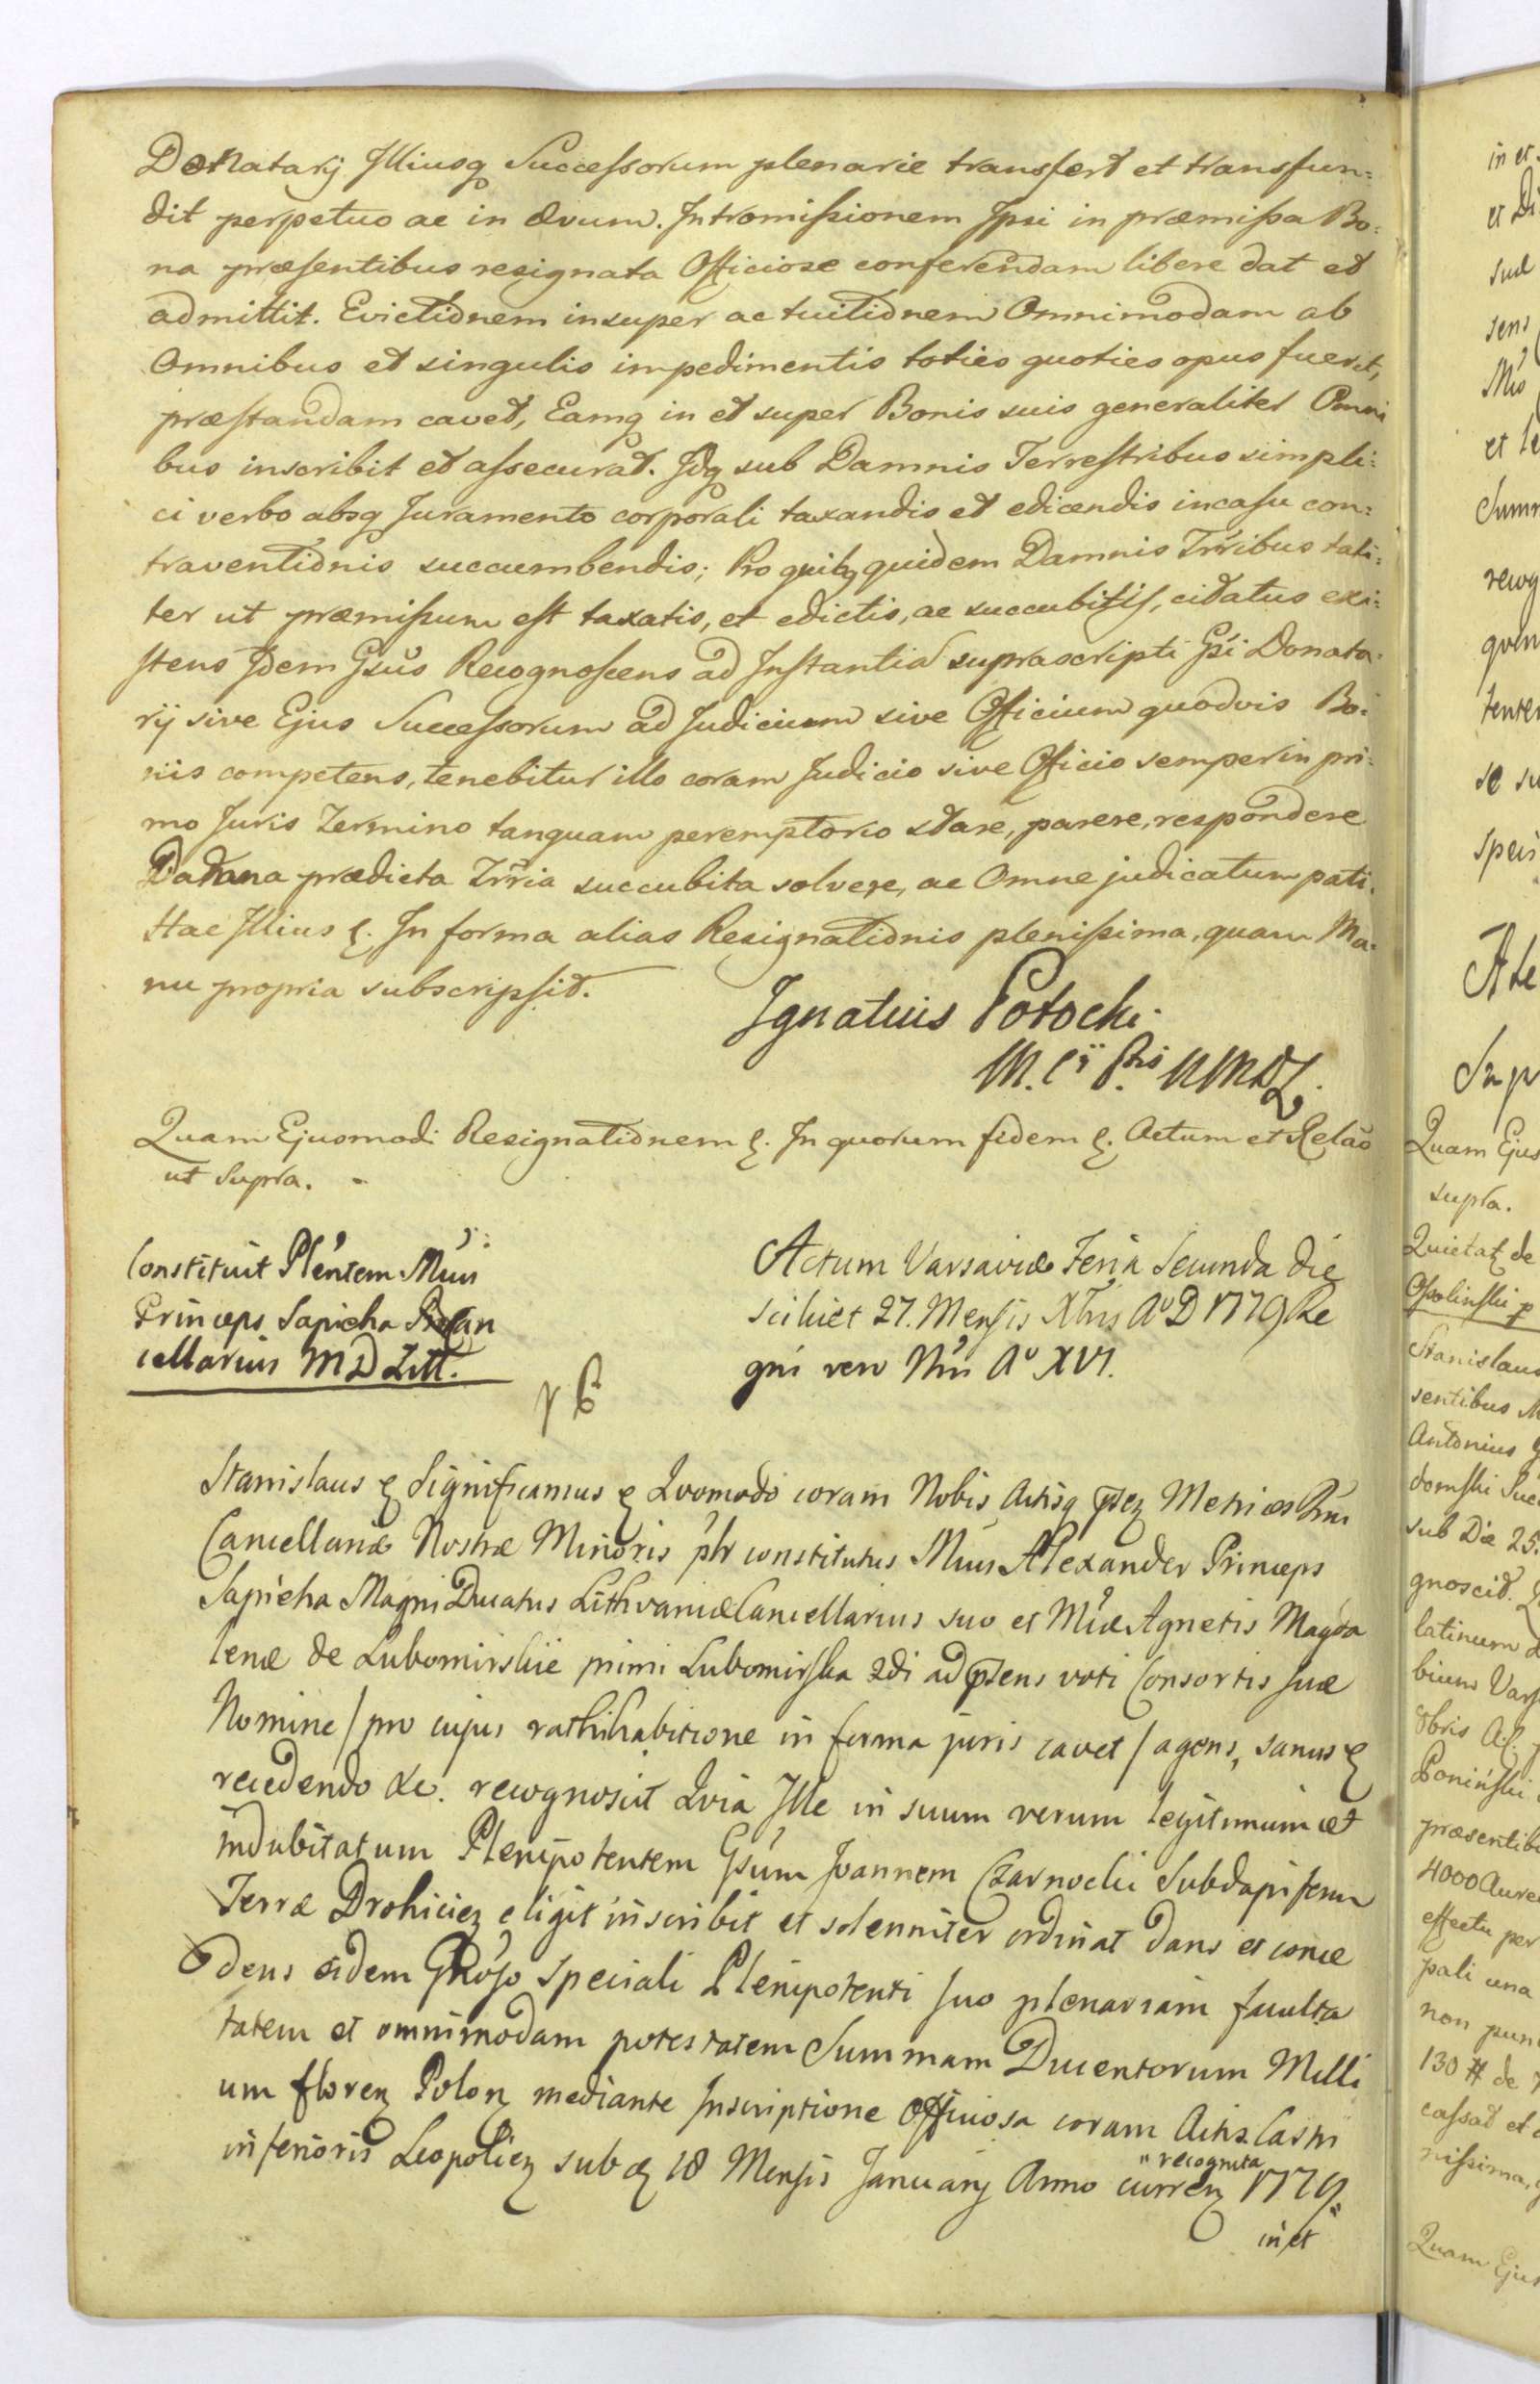 Donatarij Illiusq Successorum plenarie transfert et transfun=
dit perpetuo ac in ævum. Intromissionem Ipsi in præmissa Bo=
na præsentibus resignata Officiose conferendam libere dat et
admittit. Evictionem insuper ac tuitionem Omnimodam ab
Omnibus et singulis impedimentis toties quoties opus fuerit,
præstandam cavet, Eamq in et super Bonis suis generaliter Omni
bus inscribit et assecurat. Idq sub Damnis Terrestribus simpli=
ci verbo absq Juramento corporali taxandis et edicendis in casu con=
traventionis succumbendis; Pro quibq quidem Damnis Trribus tali=
ter ut præmissum est taxatis, et edictis, ac succubitis, citatus exi=
stens Idem Gsus Recognoscens ad Instantia suprascripti Gsi Donata=
rij sive Ejus Successorum ad Judicium sive Officium quodvis Bo=
nis competens, tenebitur illo coram Judicio sive Officio semper in pri=
mo Juris Termino tanquam peremptorio stare, parere, respondere
Damna prædicta Trria succubita solvere, ac Omne judicatum pati.
Hac Illius &. In forma alias Resignationis plenissima, quam Ma=
nu propria subscripsit.
Ignatius Potocki
Quam Ejusmodi Resignationem &. In quorum fidem &. Actum et Relao
ut Supra. -
Constituit Plentem Mŭus
Princeps Sapieha Procan
cellarius M D Litt.
Actum Varsaviæ Feria Secunda die
scilicet 27. Mensis Xbris Ao D 1779 Re
gni vero Nri Ao XVI.
Stanislaus & Significamus & Quomodo coram Nobis Actisq psez Metrices Rni
Cancellariæ Nostræ Minoris plr constitutus Mŭus Alexander Princeps
Sapieha Magni Ducatus Lithvaniæ Cancellarius suo et Mŭæ Agnetis Magda
lenæ de Lubomirskie primi Lubomirska 2di ad psens voti Consortis suæ
Nomine / pro cujus rathihabitione in forma juris cavet / agens, sanus &
recedendo &c. recognoscit Quia Ille in suum verum legitimum et
indubitatum Plenipotentem Gsum Joannem Czarnocki Subdapiferum
Terræ Drohiciez eligit inscribit et solenniter ordinat dans et conce
dens eidem Groso speciali Plenipotenti suo plenariam faculta
tatem et omnimodam potestatem Summam Ducentorum Milli
um floren Polon mediante Inscriptione Officiosa coram Actis Castri
inferioris Leopolien sub d 18 Mensis Januarij Anno curren "recognita 1779.
in et
in et
et Di
sens
et le
Sumr
recog
Quam Ejus
supra.
Quietat de
Ossolinski p
Stanislaus
sentibus M
Antonius G
domski Suc
sub Die 25.
gnoscit.
latinum d
bium Vars
8bris
Poninski
præsentib
4000 Aure
effectu per
pali una
non pun
130 # de
cassat et
nissima,
Quam Ejus